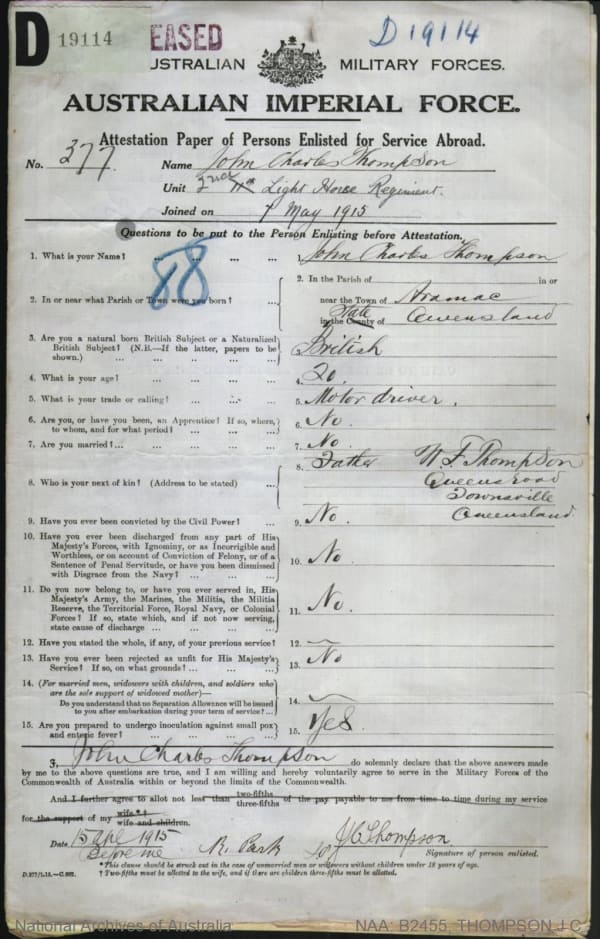 D 19114 EASED D19114
USTRALIAN MILITARY FORCES.
AUSTRALIAN IMPERIAL FORCE.
Attestation Paper of Persons Enlisted for Service Abroad.
No. 377. Name John Charles Thompson
Unit 2nd Light Horse Regiment.
Joined on 7 May 1915
Questions to be put to the Person Enlisting before Attestation.
88
1. What is your Name? ... ... ... 1. John Charles Thompson
2. In or near what Parish or Town were you born? ... 2. In the Parish of in or
near the Town of Aramac
State
in the County of Queensland
3. Are you a natural born British Subject or a Naturalized
British Subject? (N.B.—If the latter, papers to be
shown.) ... ... ... ... 3. British
4. What is your age? ... ... ... 4. 20.
5. What is your trade or calling? ... ... 5. Motor driver.
6. Are you, or have you been, an Apprentice? If so, where,
to whom, and for what period? ... ... 6. No.
7. Are you married? ... ... ... ... 7. No.
8. Who is your next of kin? (Address to be stated) ... 8. Father W F Thompson
Queens road
Townsville
Queensland
9. Have you ever been convicted by the Civil Power? ... 9. No.
10. Have you ever been discharged from any part of His
Majesty's Forces, with Ignominy, or as Incorrigible and
Worthless, or on account of Conviction of Felony, or of a
Sentence of Penal Servitude, or have you been dismissed
with Disgrace from the Navy? ... ... ... 10. No.
11. Do you now belong to, or have you ever served in, His
Majesty's Army, the Marines, the Militia, the Militia
Reserve, the Territorial Force, Royal Navy, or Colonial
Forces? If so, state which, and if not now serving,
state cause of discharge ... ... ... 11. No.
12. Have you stated the whole, if any, of your previous service? 12. —
13. Have you ever been rejected as unfit for His Majesty's
Service? If so, on what grounds? ... ... ... 13. No
14. (For married men, widowers with children, and soldiers who
are the sole support of widowed mother)—
Do you understand that no Separation Allowance will be issued
to you after embarkation during your term of service? ... 14. —
15. Are you prepared to undergo inoculation against small pox
and enteric fever? ... ... ... ... 15. Yes
I, John Charles Thompson do solemnly declare that the above answers made
by me to the above questions are true, and I am willing and hereby voluntarily agree to serve in the Military Forces of the
Commonwealth of Australia within or beyond the limits of the Commonwealth.
And I further agree to allot not less than two-fifths three-fifths of the pay payable to me from time to time during my service
for the support of my wife*† wife and children.
Date 15 Apl 1915 J C Thompson.
Before me R. Park Signature of person enlisted.
* This clause should be struck out in the case of unmarried men or widowers without children under 18 years of age.
D.277/1.15.—C.892. † Two-fifths must be allotted to the wife, and if there are children three-fifths must be allotted.
National Archives of Australia NAA: B2455, THOMPSON J C